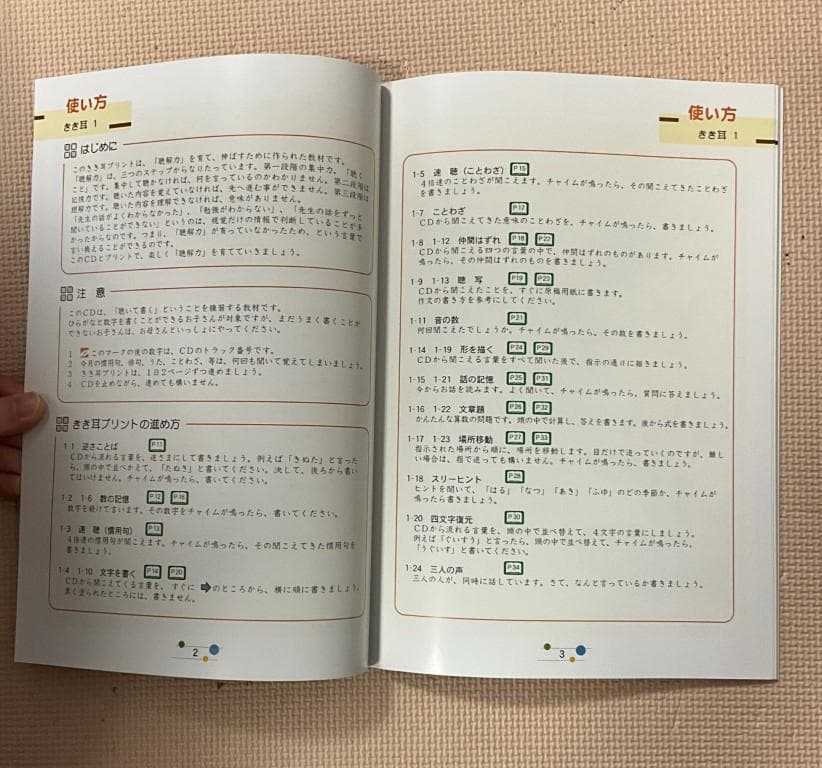 使い方
きき耳 1
はじめに
このきき耳プリントは、「聴解力」を育て、伸ばすために作られた教材です。
「聴解力」は、三つのステップからなりたっています。第一段階の集中力。「聴く
こと」です。集中して聴かなければ、何を言っているのかわかりません。第二段階は
記憶力です。聴いた内容を覚えていなければ、先へ進む事ができません。第三段階は
理解力です。聴いた内容を理解できなければ、意味がありません。
「先生の話がよくわからなかった」、「勉強がわからない」、「先生の話をずっと
聞いていることができない」というのは、視覚だけの情報で判断していることが多
かったからなのです。つまり、「聴解力」が育っていなかったため、という言葉で
言い換えることができるのです。
このCDとプリントで、楽しく「聴解力」を育てていきましょう。
注 意
このCDは、「聴いて書く」ということを練習する教材です。
ひらがなと数字を書くことができるお子さんが対象ですが、まだうまく書くことが
できないお子さんは、お母さんといっしょにやってください。
1 このマークの後の数字は、CDのトラック番号です。
2 今月の慣用句、俳句、うた、ことわざ、等は、何回も聞いて覚えてしまいましょう。
3 きき耳プリントは、1日2ページずつ進めましょう。
4 CDを止めながら、進めても構いません。
きき耳プリントの進め方
1-1 逆さことば P11
CDから流れる言葉を、逆さまにして書きましょう。例えば「きぬた」と言った
ら、頭の中で並べかえて、「たぬき」と書いてください。決して、後ろから書いて
はいけません。チャイムが鳴ったら、書いてください。
1-2 1-6 数の記憶 P12 P16
数字を続けて言います。その数字をチャイムが鳴ったら、書いてください。
1-3 速 聴（慣用句） P13
4倍速の慣用句が聞こえます。チャイムが鳴ったら、その聞こえてきた慣用句を
書きましょう。
1-4 1-10 文字を書く P14 P20
CDから聞こえてくる言葉を、すぐに ➡ のところから、横に順に書きましょう。
黒く塗られたところには、書きません。
2
使い方
きき耳 1
1-5 速 聴（ことわざ） P15
4倍速のことわざが聞こえます。チャイムが鳴ったら、その聞こえてきたことわざ
を書きましょう。
1-7 ことわざ P17
CDから聞こえてきた意味のことわざを、チャイムが鳴ったら、書きましょう。
1-8 1-12 仲間はずれ P18 P22
CDから聞こえる四つの言葉の中で、仲間はずれのものがあります。チャイムが
鳴ったら、その仲間はずれのものを書きましょう。
1-9 1-13 聴 写 P19 P23
CDから聞こえたことを、すぐに原稿用紙に書きます。
作文の書き方を参考にしてください。
1-11 音の数 P21
何回聞こえたでしょうか。チャイムが鳴ったら、その数を書きましょう。
1-14 1-19 形を描く P24 P29
CDから聞こえる言葉をすべて聞いた後で、指示の通りに描きましょう。
1-15 1-21 話の記憶 P25 P31
今からお話を読みます。よく聞いて、チャイムが鳴ったら、質問に答えましょう。
1-16 1-22 文章題 P26 P32
かんたんな算数の問題です。頭の中で計算し、答えを書きます。後から式を書きましょう。
1-17 1-23 場所移動 P27 P33
指示された場所から順に、場所を移動します。目だけで追っていくのですが、難し
い場合は、指で追っても構いません。チャイムが鳴ったら、書きましょう。
1-18 スリーヒント P28
ヒントを聞いて、「はる」「なつ」「あき」「ふゆ」のどの季節か、チャイムが
鳴ったら書きましょう。
1-20 四文字復元 P30
CDから流れる言葉を、頭の中で並べ替えて、4文字の言葉にしましょう。
例えば「ぐいすう」と言ったら、頭の中で並べ替えて、チャイムが鳴ったら、
「うぐいす」と書いてください。
1-24 三人の声 P34
三人の人が、同時に話しています。さて、なんと言っているか書きましょう。
3